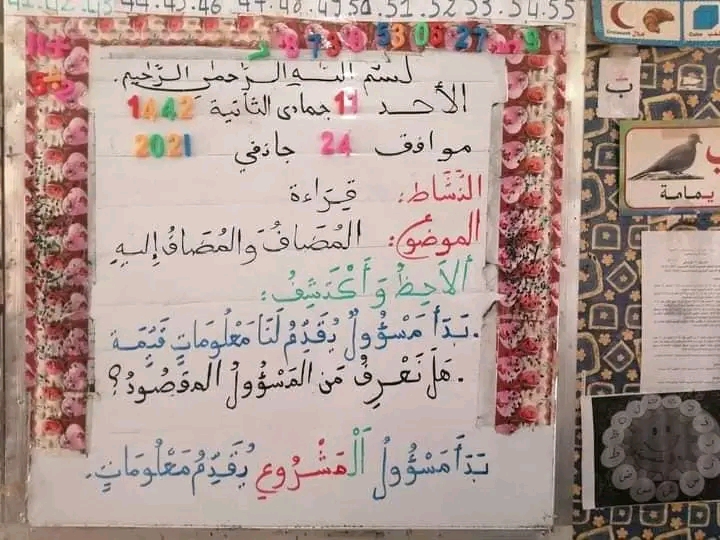 41.42.43.44.45.46.47.48.49.50.51.52.53.54.55
بسم الله الرحمن الرحيم.
الأحد 11 جمادى الثانية 1442
موافق 24 جانفي 2021
النَّشَاط: قِرَاءة
الموضوع: المُضَافُ وَالمُضَافُ إِلَيهِ
أُلَاحِظُ وَأَكْتَشِفُ:
.بَدَأَ مَسْؤُولٌ يُقَدِّمُ لَنَا مَعْلُومَاتٍ قَيِّمَة
.هَلْ نَعْرِفُ مَن المَسْؤُولُ المقصُودُ؟
بَدَأَ مَسْؤُولُ الْمَشْرُوعِ يُقَدِّمُ مَعْلُومَاتٍ.
ب
يمامة